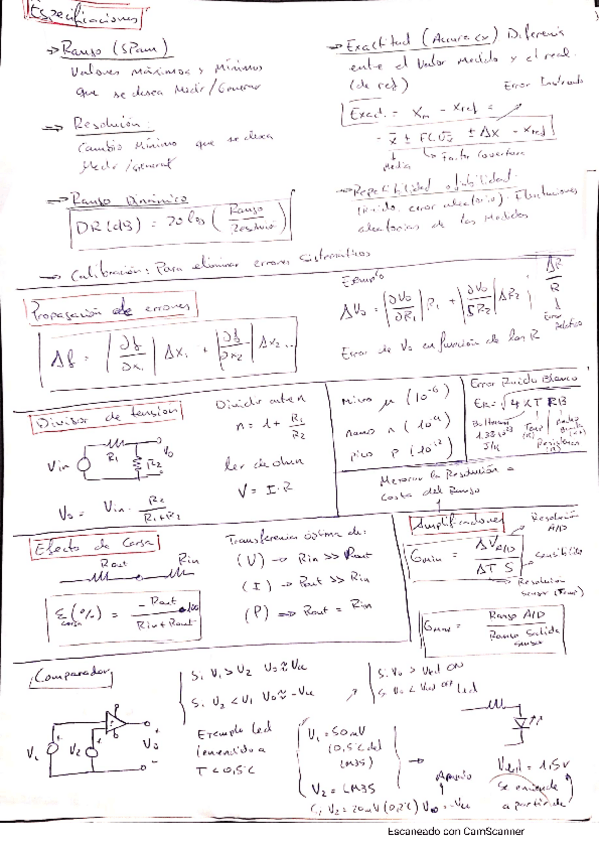 Especificaciones
→ Rango (Span)
Valores Máximos y Mínimos
que se desea Medir/Generar
→ Resolución:
Cambio Mínimo que se desea
Medir/generar
→ Rango Dinámico
DR(dB) = 20 log (Rango/Resolución)
→ Exactitud (Accuracy) Diferencia
entre el Valor Medido y el real
(de ref)
Exact. = Xm - Xref =
= x̄ ± FC√s ± ΔX - Xref
Media
Factor Cobertura
→ Repetibilidad o fiabilidad:
(ruido, error aleatorio). Fluctuaciones
aleatorias de las Medidas
→ Calibración: Para eliminar errores sistemáticos
Propagación de errores
Δf = |∂f/∂x₁| Δx₁ + |∂f/∂x₂| Δx₂ ...
Ejemplo
ΔV₀ = |∂V₀/∂R₁| R₁ + |∂V₀/∂R₂| ΔR₂
ΔR/R
Error
Relativo
Error de V₀ en función de las R
Divisor de tensión
R₁
R₂
V₀
Vin
V₀ = Vin · R₂/(R₁+R₂)
Dividir entre n
n = 1 + R₁/R₂
ley de ohm
V = I · R
micro μ (10⁻⁶)
nano n (10⁻⁹)
pico p (10⁻¹²)
Error Ruido Blanco
En = √4KTRB
Mejorar la Resolución a
costa del Rango
Efecto de Carga
Rout
Rin
Ecarga (%) = -Rout/(Rin+Rout) · 100
Transferencia óptima de:
(V) → Rin >> Rout
(I) → Rout >> Rin
(P) ⇒ Rout = Rin
Amplificadores
Resolución
A/D
Gmin = ΔV A/D / ΔT S
Sensibilidad
Resolución
sensor
Gmax = Rango A/D / Rango Salida sensor
Comparador
V₁
V₂
V₀
Si V₁ > V₂ V₀ ≈ Vcc
Si V₂ < V₁ V₀ ≈ -Vcc
Ejemplo Led
encendido a
T < 0,5°C
V₁ = 50mV
(0,5°C del
LM35)
V₂ = LM35
Si V₀ > Vled ON
Si V₀ < Vled OFF Led
Vled = 1,5V
Se enciende
a partir de
Escaneado con CamScanner